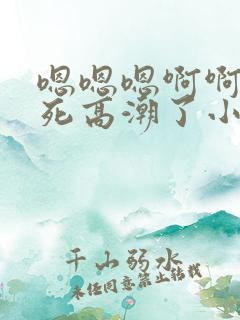 嗯嗯嗯啊啊
死高潮了小
千山弱水
未经同意禁止转载